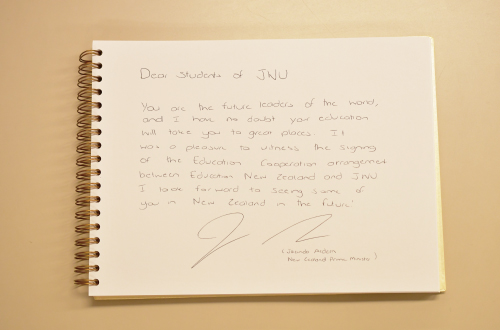 Dear Students of JNU
You are the future leaders of the world,
and I have no doubt your education
will take you to great places. It
was a pleasure to witness the signing
of the Education Cooperation arrangement
between Education New Zealand and JNU
I look forward to seeing some of
you in New Zealand in the future!
(Jacinda Ardern
New Zealand Prime Minister)